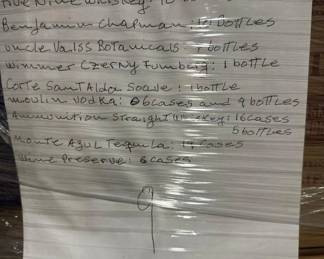 Five Nine Whiskey: 10
Benjamin Chapman: 11 bottles
Uncle Valss Botanicals: 1 bottles
Wimmer Czerny Fumberg: 1 bottle
Corte Sant Alda Soave: 1 bottle
Moulin Vodka: 6 cases and 9 bottles
Ammunition Straight Whiskey: 16 cases
5 bottles
Monte Azul Tequila: 19 Cases
Preserve: 6 cases